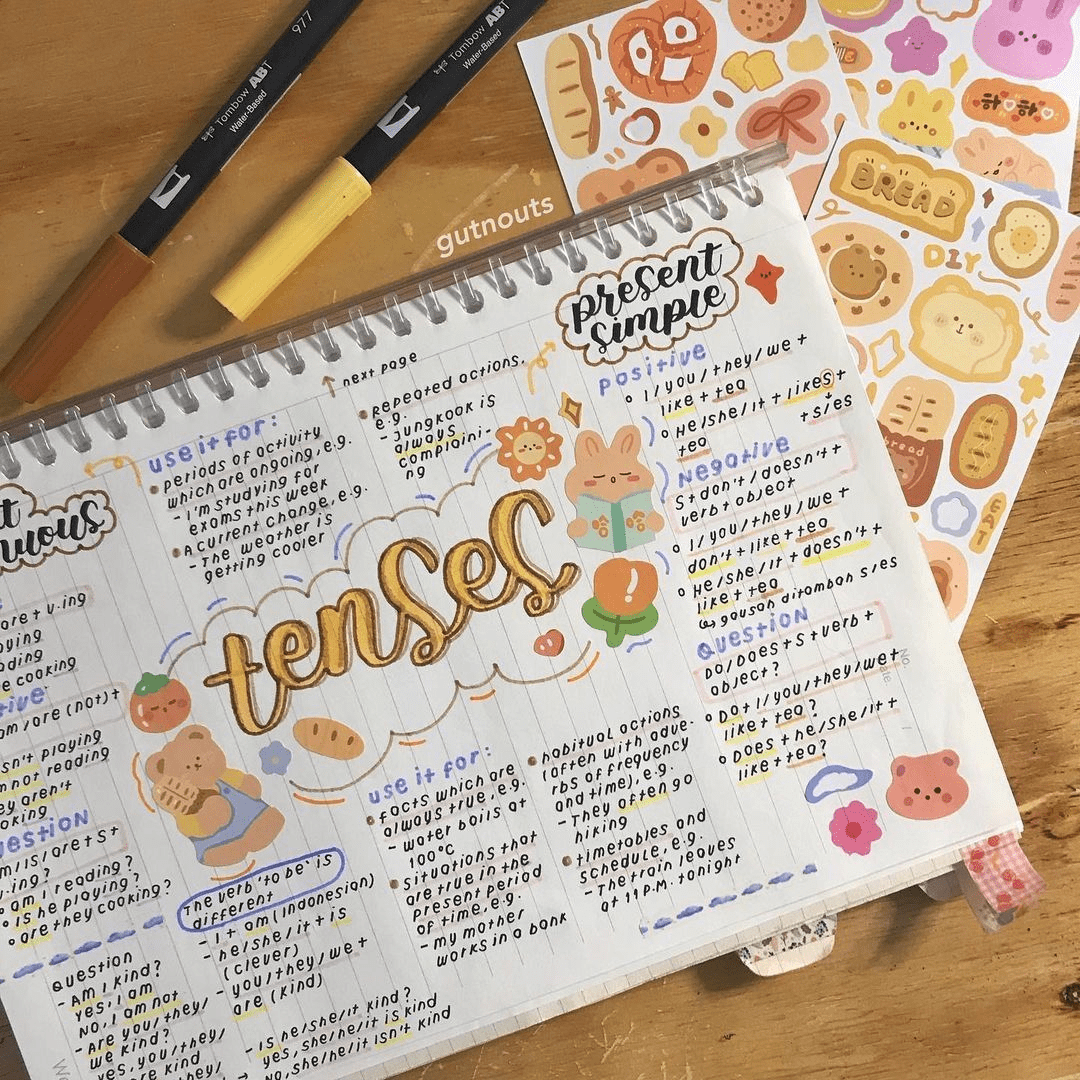 977
Tombow ABT
Water-Based
Tombow ABT
Water-Based
gutnouts
BREAD
DIY
bread
EAT
하 하
next page
present
simple
positive
I/you/they/we +
like + tea
He/she/it + likes +
tea
+s/es
Negative
S + don't/doesn't +
verb + object
I/you/they/we +
don't + like + tea
He/she/it + doesn't +
like + tea
↳ gausah ditambah s/es
QUESTION
Do/Does + S + verb +
object?
Do + I/you/they/we +
like + tea?
Does + he/she/it +
like + tea?
No.
Date
use it for:
periods of activity
which are ongoing, e.g.
- I'm studying for
exams this week
A current change, e.g.
- The weather is
getting cooler
Repeated actions,
e.g.
- Jungkook is
always
complaini-
ng
tenses
use it for:
facts which are
always true, e.g.
- water boils at
100°C
situations that
are true in the
present period
of time, e.g.
- my mother
works in a bank
habitual actions
(often with adve-
rbs of frequency
and time), e.g.
- They often go
hiking
timetables and
schedule, e.g.
- The train leaves
at 11 P.M. tonight
are + v-ing
cooking
am/are (not) +
isn't playing
not reading
they aren't
cooking
QUESTION
am/is/are + S +
v-ing?
am I reading?
Is he playing?
are they cooking?
The verb 'to be' is
different
- I + am (Indonesian)
- he/she/it + is
(clever)
- you/they/we +
are (kind)
QUESTION
- Am I kind?
Yes, I am
No, I am not
- Are you/they/
we kind?
yes, you/they/
are kind
they/
- Is he/she/it kind?
→ yes, she/he/it is kind
No, she/he/it isn't kind